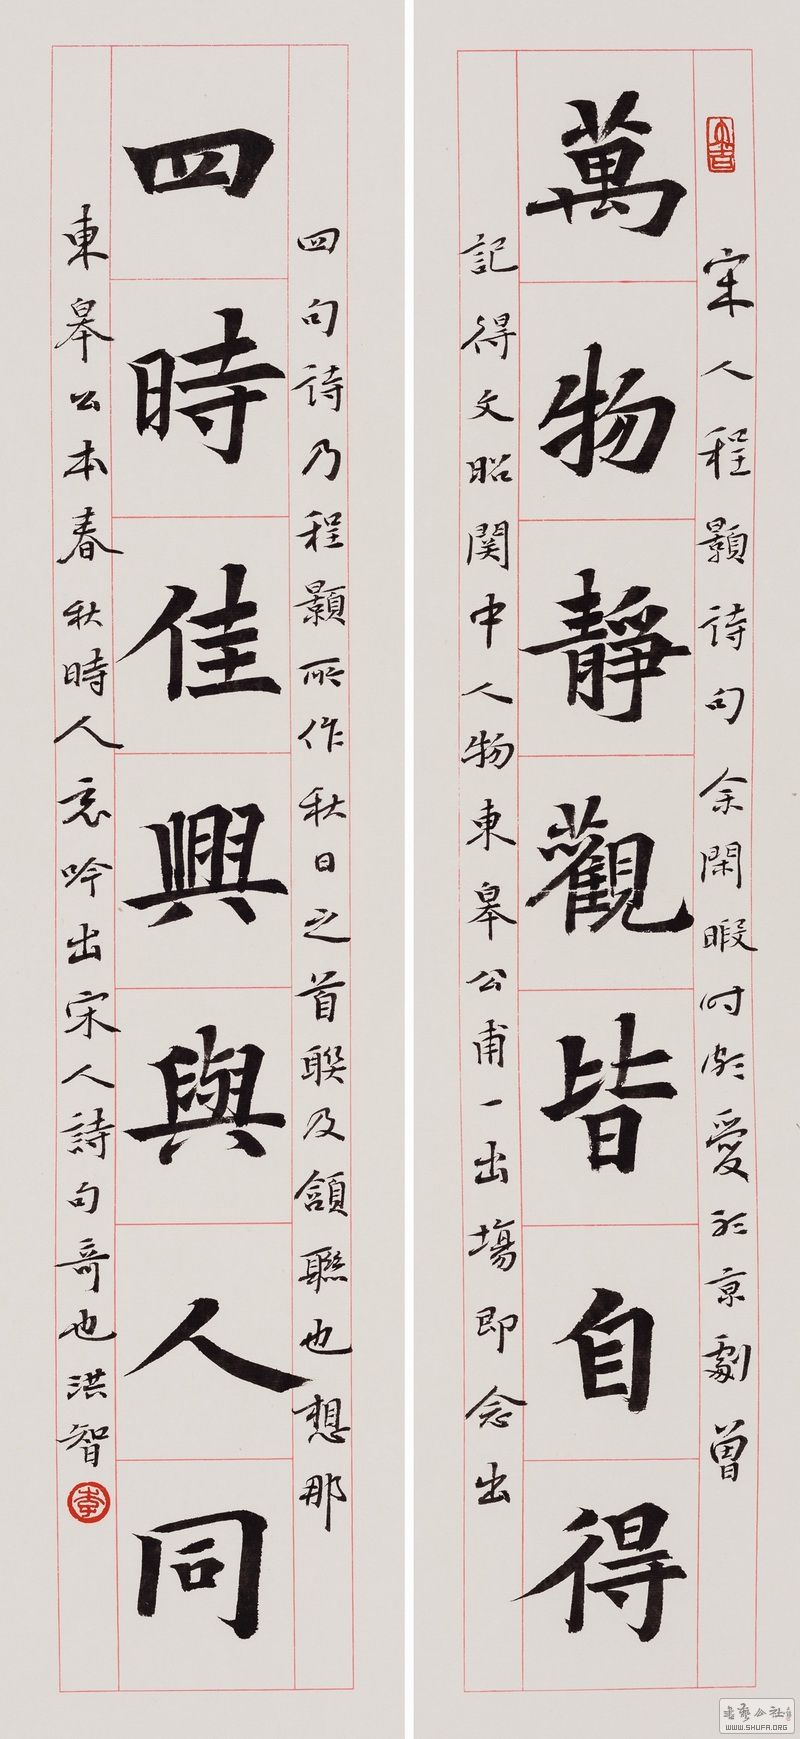 宋人程顥詩句余閑暇时頗愛於京劇曾
萬物靜觀皆自得
記得文昭関中人物東皋公甫一出場即念出
四句詩乃程顥所作秋日之首聯及頷聯也想那
四時佳興與人同
東皋公本春秋時人忘吟出宋人詩句奇也洪智
WWW.SHUFA.ORG